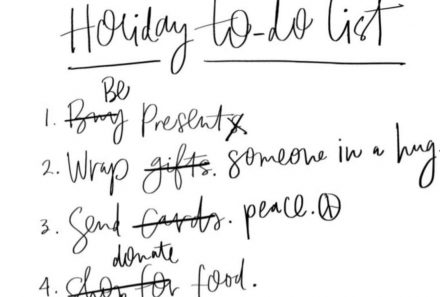 Holiday to-do list
Be
1. Buy Presents
2. Wrap gifts. someone in a hug.
3. Send cards. peace.
donate
4. shop for food.